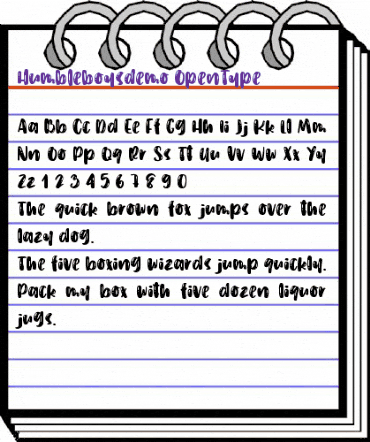 Humbleboysdemo OpenType
Aa Bb Cc Dd Ee Ff Gg Hh Ii Jj Kk Ll Mm
Nn Oo Pp Qq Rr Ss Tt Uu Vv Ww Xx Yy
Zz 1 2 3 4 5 6 7 8 9 0
The quick brown fox jumps over the
lazy dog.
The five boxing wizards jump quickly.
Pack my box with five dozen liquor
jugs.